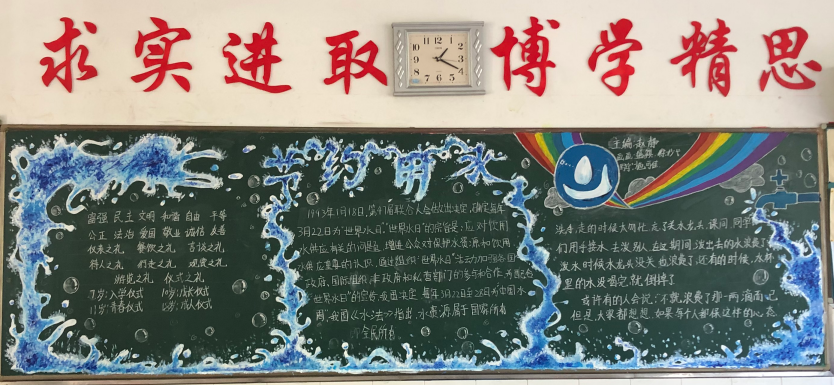 求实进取 博学精思
12
节约用水
主编:赵静
富强 民主 文明 和谐 自由 平等
公正 法治 爱国 敬业 诚信 友善
仪表之礼 餐饮之礼 言谈之礼
待人之礼 行走之礼 观赏之礼
游览之礼 仪式之礼
7岁:入学仪式 10岁:成长仪式
14岁:青春仪式 18岁:成人仪式
1993年1月18日,第47届联合大会做出决定,确定每年
3月22日为"世界水日"。"世界水日"的宗旨是:应对饮用
水供应有关的问题,增进公众对保护水资源和饮用
水供应重要的认识,通过组织"世界水日"活动加强各国
政府、国际组织、非政府和私营部门的参与和合作。为配合
"世界水日"的宣传,我国决定每年3月22日至28日为中国水
周,我国《水法》指出 水资源属于国家所有
全民所有
洗手走的时候大网社 忘了关水龙头,课间同学
们用手接水去泼别人 这期间泼出去的水浪费了
泼水时候水龙头没关也浪费了,还有的时候,水杯
里的水没喝它就倒掉了
或许有的人会说:不就浪费了那一两滴而已
但是大家都想想 如果每个人都保这样的心态